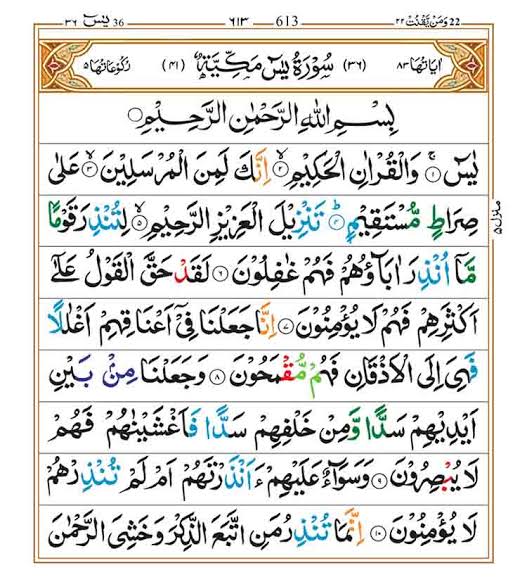 وَمَنْ يَّقْنُتْ 22 ٢٢ 613 ٦١٣ يٰسٓ 36 ٣٦
اٰيَاتُهَا ٨٣ (٣٦) سُوْرَةُ يٰسٓ مَكِّيَّةٌ (٤١) رُكُوْعَاتُهَا ٥
بِسْمِ اللّٰهِ الرَّحْمٰنِ الرَّحِيْمِ
يٰسٓ ١ وَالْقُرْاٰنِ الْحَكِيْمِ ٢ اِنَّكَ لَمِنَ الْمُرْسَلِيْنَ ٣ عَلٰى
صِرَاطٍ مُّسْتَقِيْمٍ ٤ تَنْزِيْلَ الْعَزِيْزِ الرَّحِيْمِ ٥ لِتُنْذِرَ قَوْمًا
مَّآ اُنْذِرَ اٰبَآؤُهُمْ فَهُمْ غٰفِلُوْنَ ٦ لَقَدْ حَقَّ الْقَوْلُ عَلٰٓى
اَكْثَرِهِمْ فَهُمْ لَا يُؤْمِنُوْنَ ٧ اِنَّا جَعَلْنَا فِيْٓ اَعْنَاقِهِمْ اَغْلٰلًا
فَهِيَ اِلَى الْاَذْقَانِ فَهُمْ مُّقْمَحُوْنَ ٨ وَجَعَلْنَا مِنْۢ بَيْنِ
اَيْدِيْهِمْ سَدًّا وَّمِنْ خَلْفِهِمْ سَدًّا فَاَغْشَيْنٰهُمْ فَهُمْ
لَا يُبْصِرُوْنَ ٩ وَسَوَآءٌ عَلَيْهِمْ ءَاَنْذَرْتَهُمْ اَمْ لَمْ تُنْذِرْهُمْ
لَا يُؤْمِنُوْنَ ١٠ اِنَّمَا تُنْذِرُ مَنِ اتَّبَعَ الذِّكْرَ وَخَشِيَ الرَّحْمٰنَ
منزل ٥